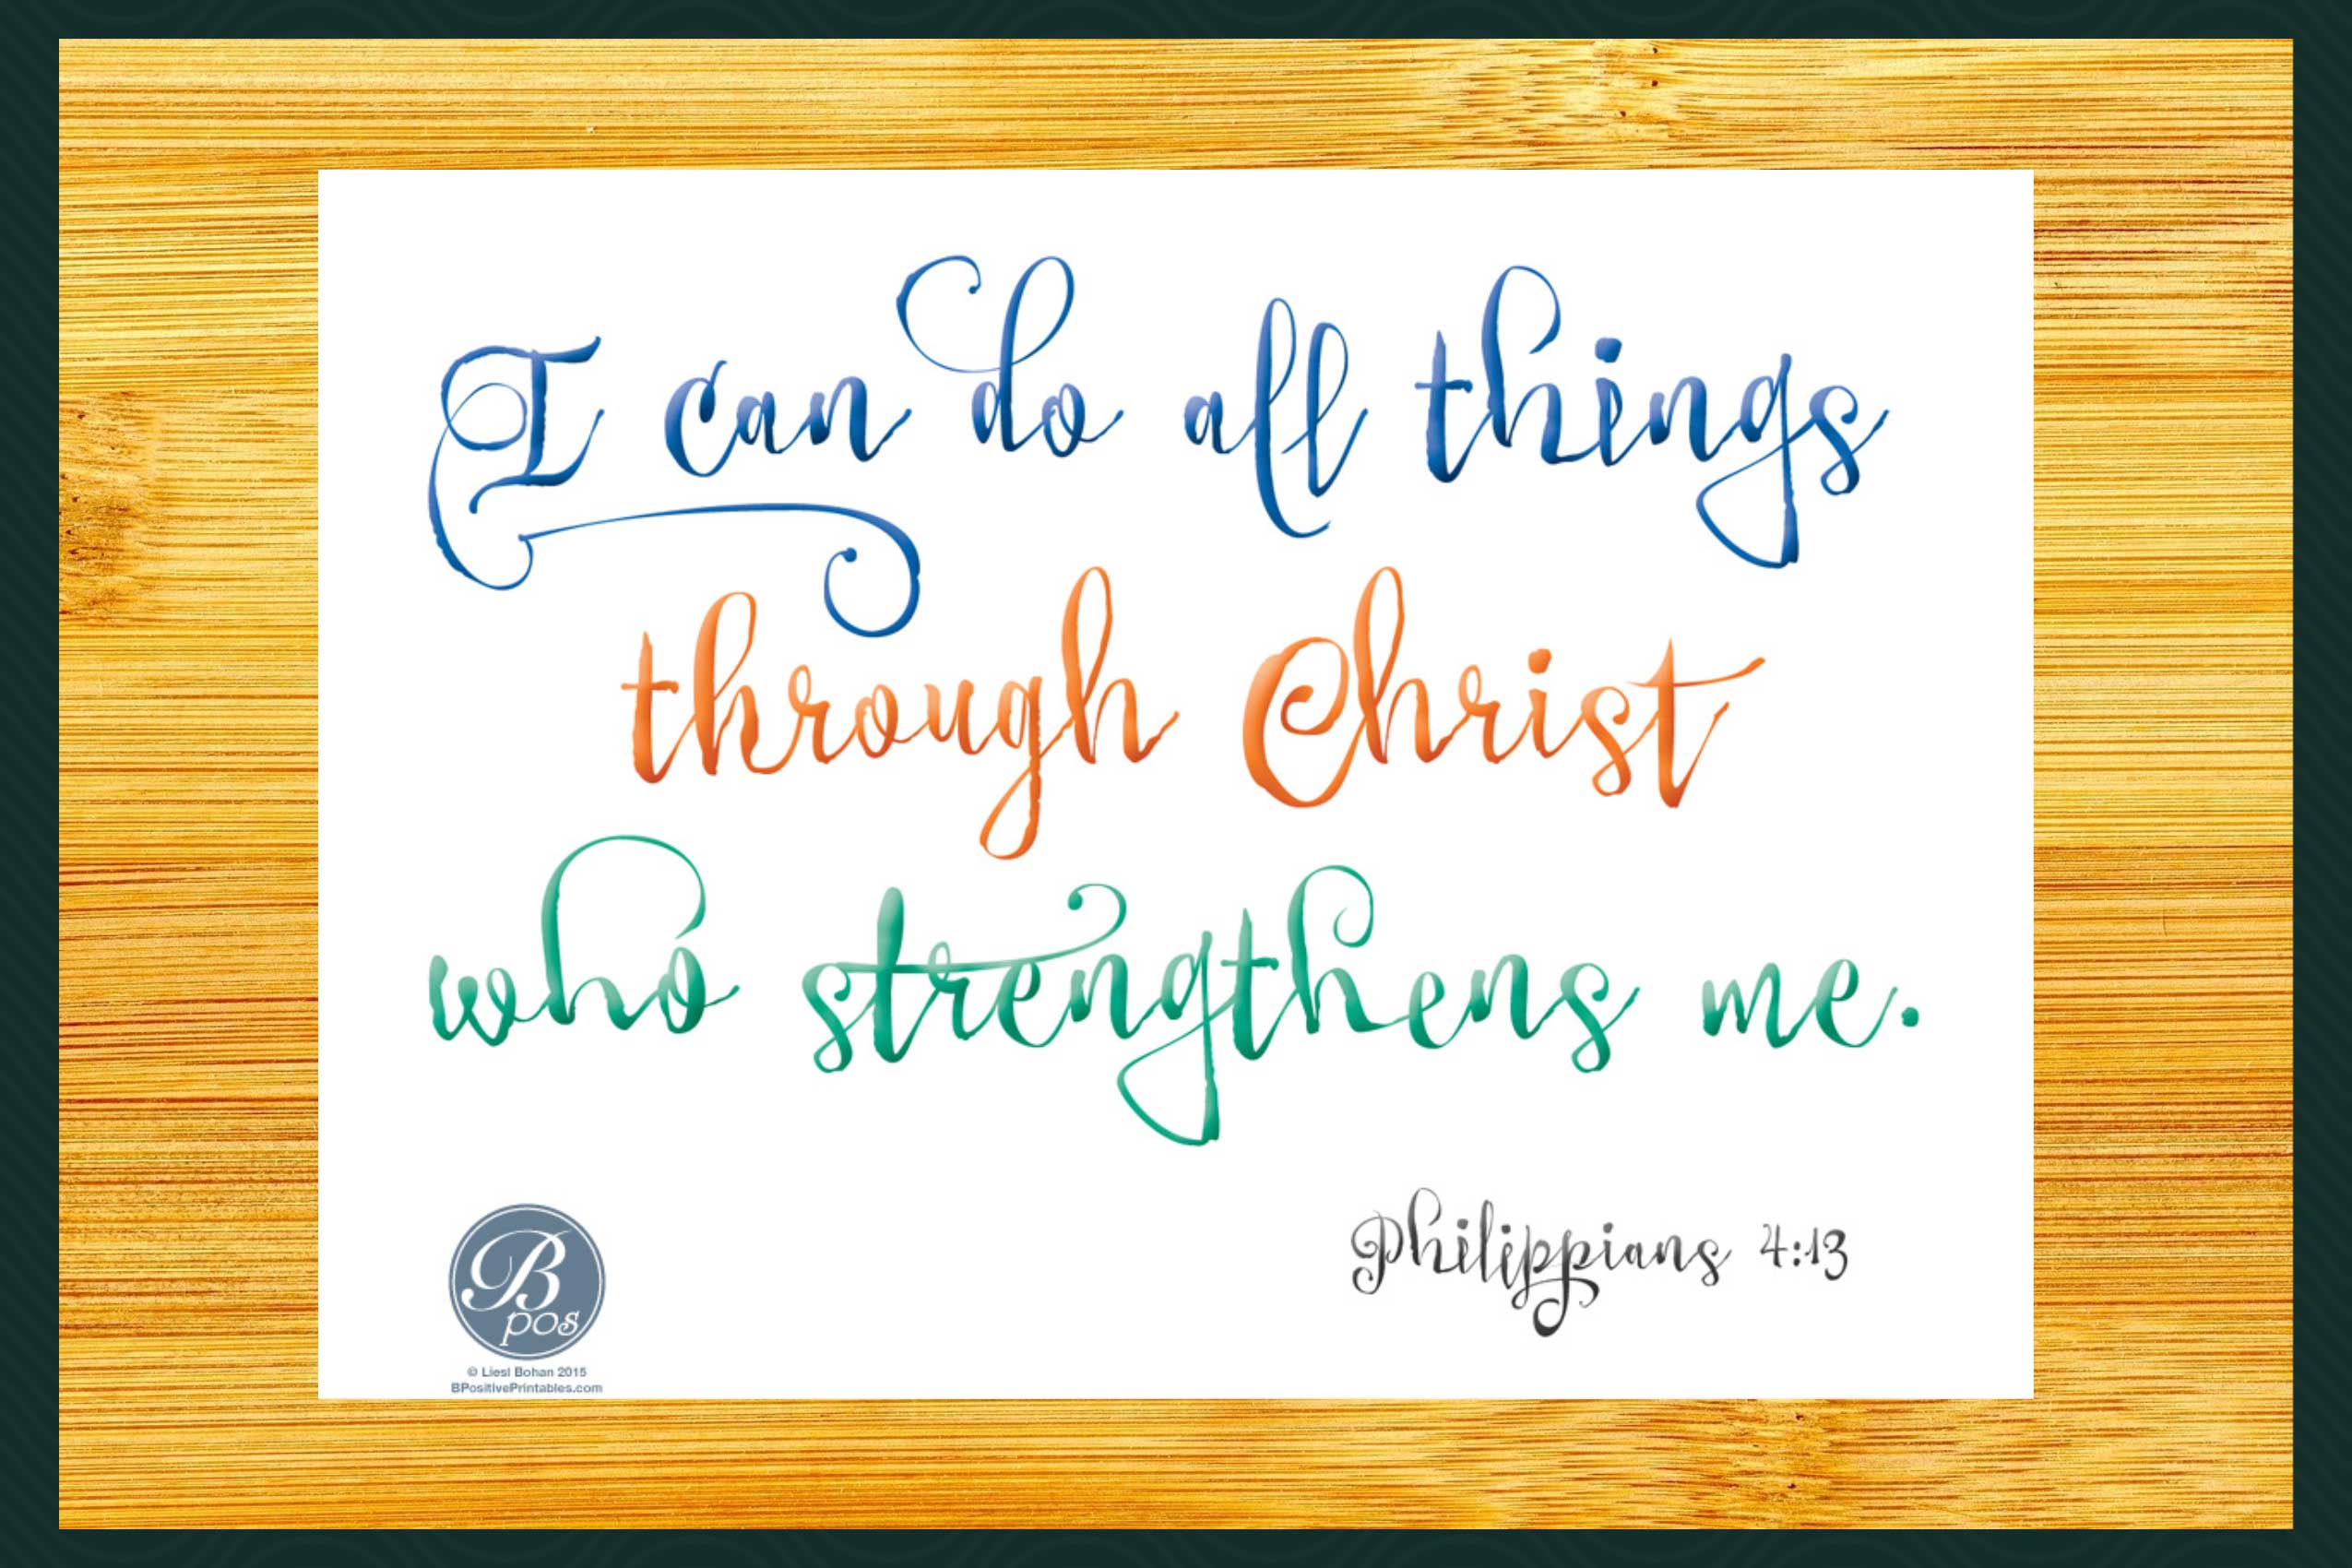 I can do all things
through Christ
who strengthens me.
Philippians 4:13
B
pos
© Liesl Bohan 2015
BPositivePrintables.com